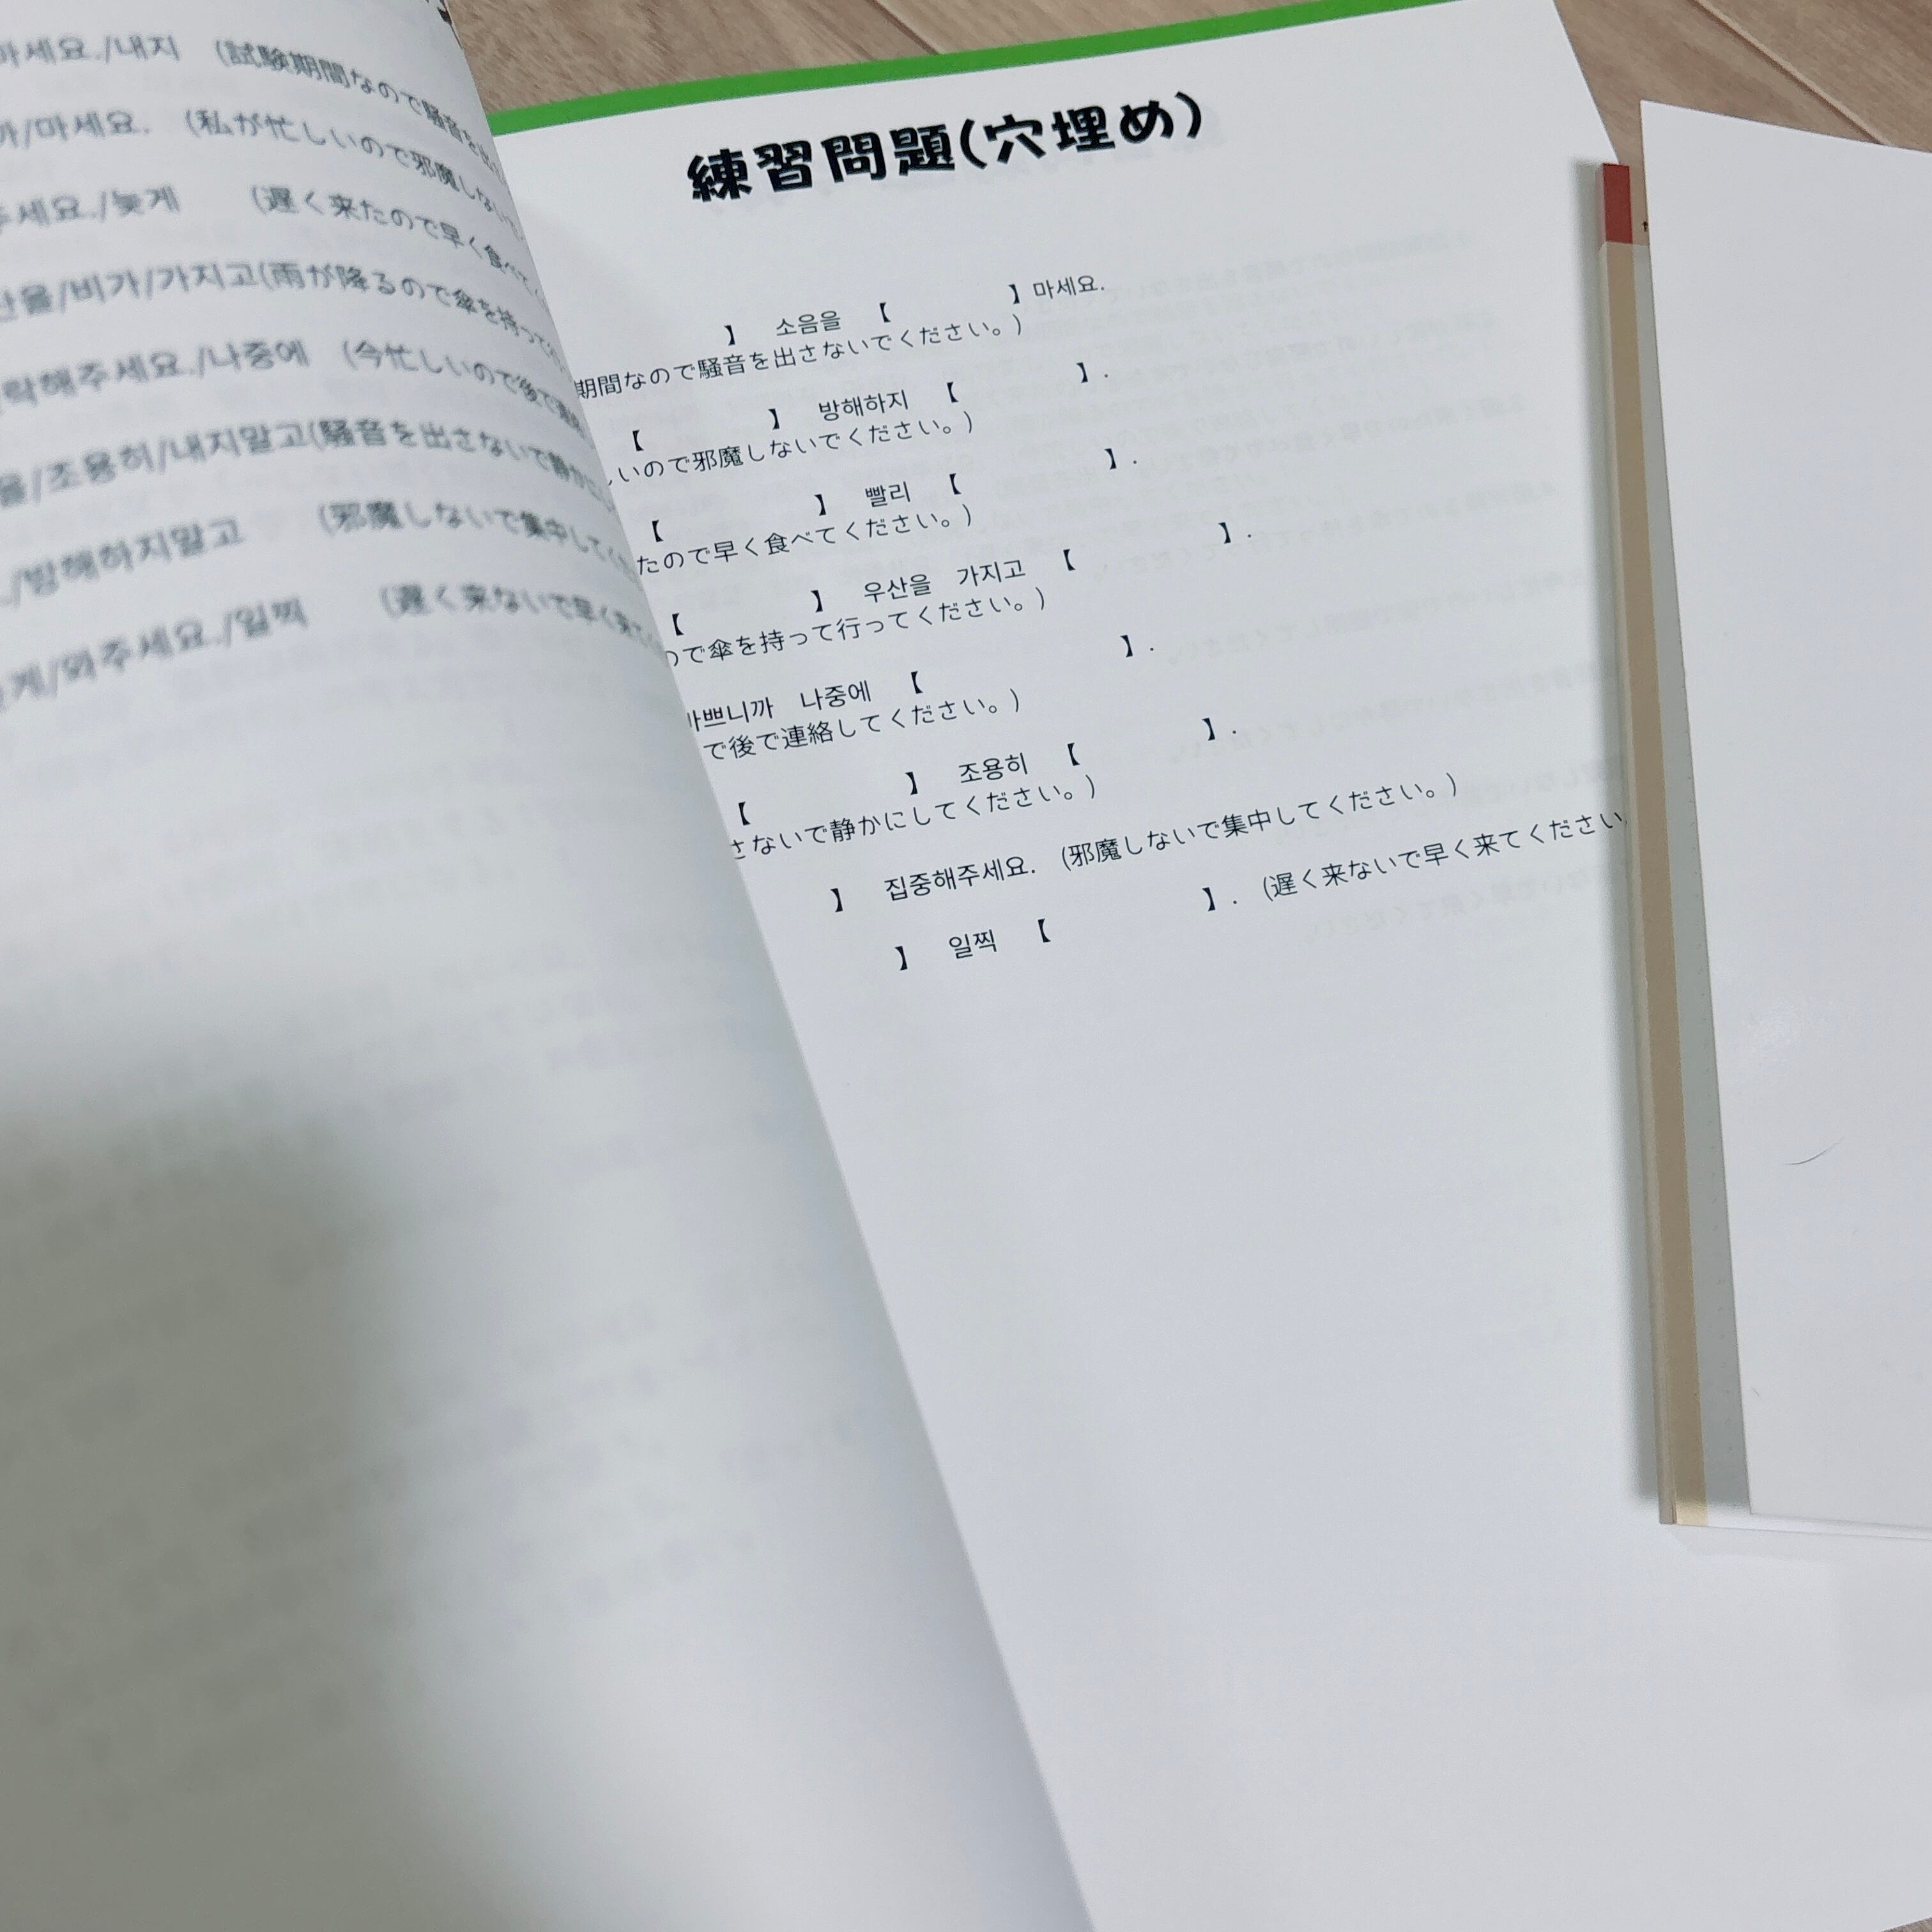 마세요./내지 (試験期間なので騒音を出
까/마세요. (私が忙しいので邪魔しない
주세요./늦게 (遅く来たので早く食べて
산을/비가/가지고(雨が降るので傘を持って
락해주세요./나중에 (今忙しいので後で連絡
을/조용히/내지말고(騒音を出さないで静かに
/방해하지말고 (邪魔しないで集中してくだ
게/와주세요./일찍 (遅く来ないで早く来て
練習問題(穴埋め)
】 소음을 【 】마세요.
期間なので騒音を出さないでください。)
【 】 방해하지 【 】.
いので邪魔しないでください。)
【 】 빨리 【 】.
たので早く食べてください。)
【 】 우산을 가지고 【 】.
ので傘を持って行ってください。)
바쁘니까 나중에 【 】.
で後で連絡してください。)
【 】 조용히 【 】.
さないで静かにしてください。)
】 집중해주세요. (邪魔しないで集中してください。)
】 일찍 【 】. (遅く来ないで早く来てください